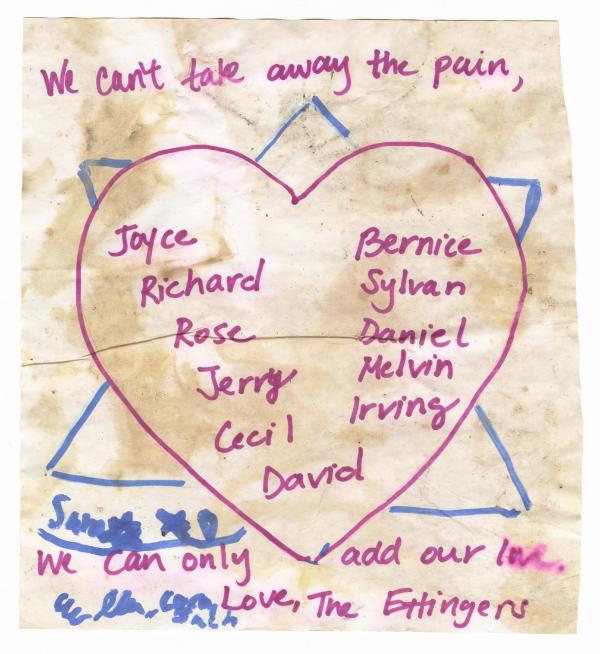 We can't take away the pain,
Joyce
Richard
Rose
Jerry
Cecil
David
Bernice
Sylvan
Daniel
Melvin
Irving
We can only add our love.
Love, The Ettingers